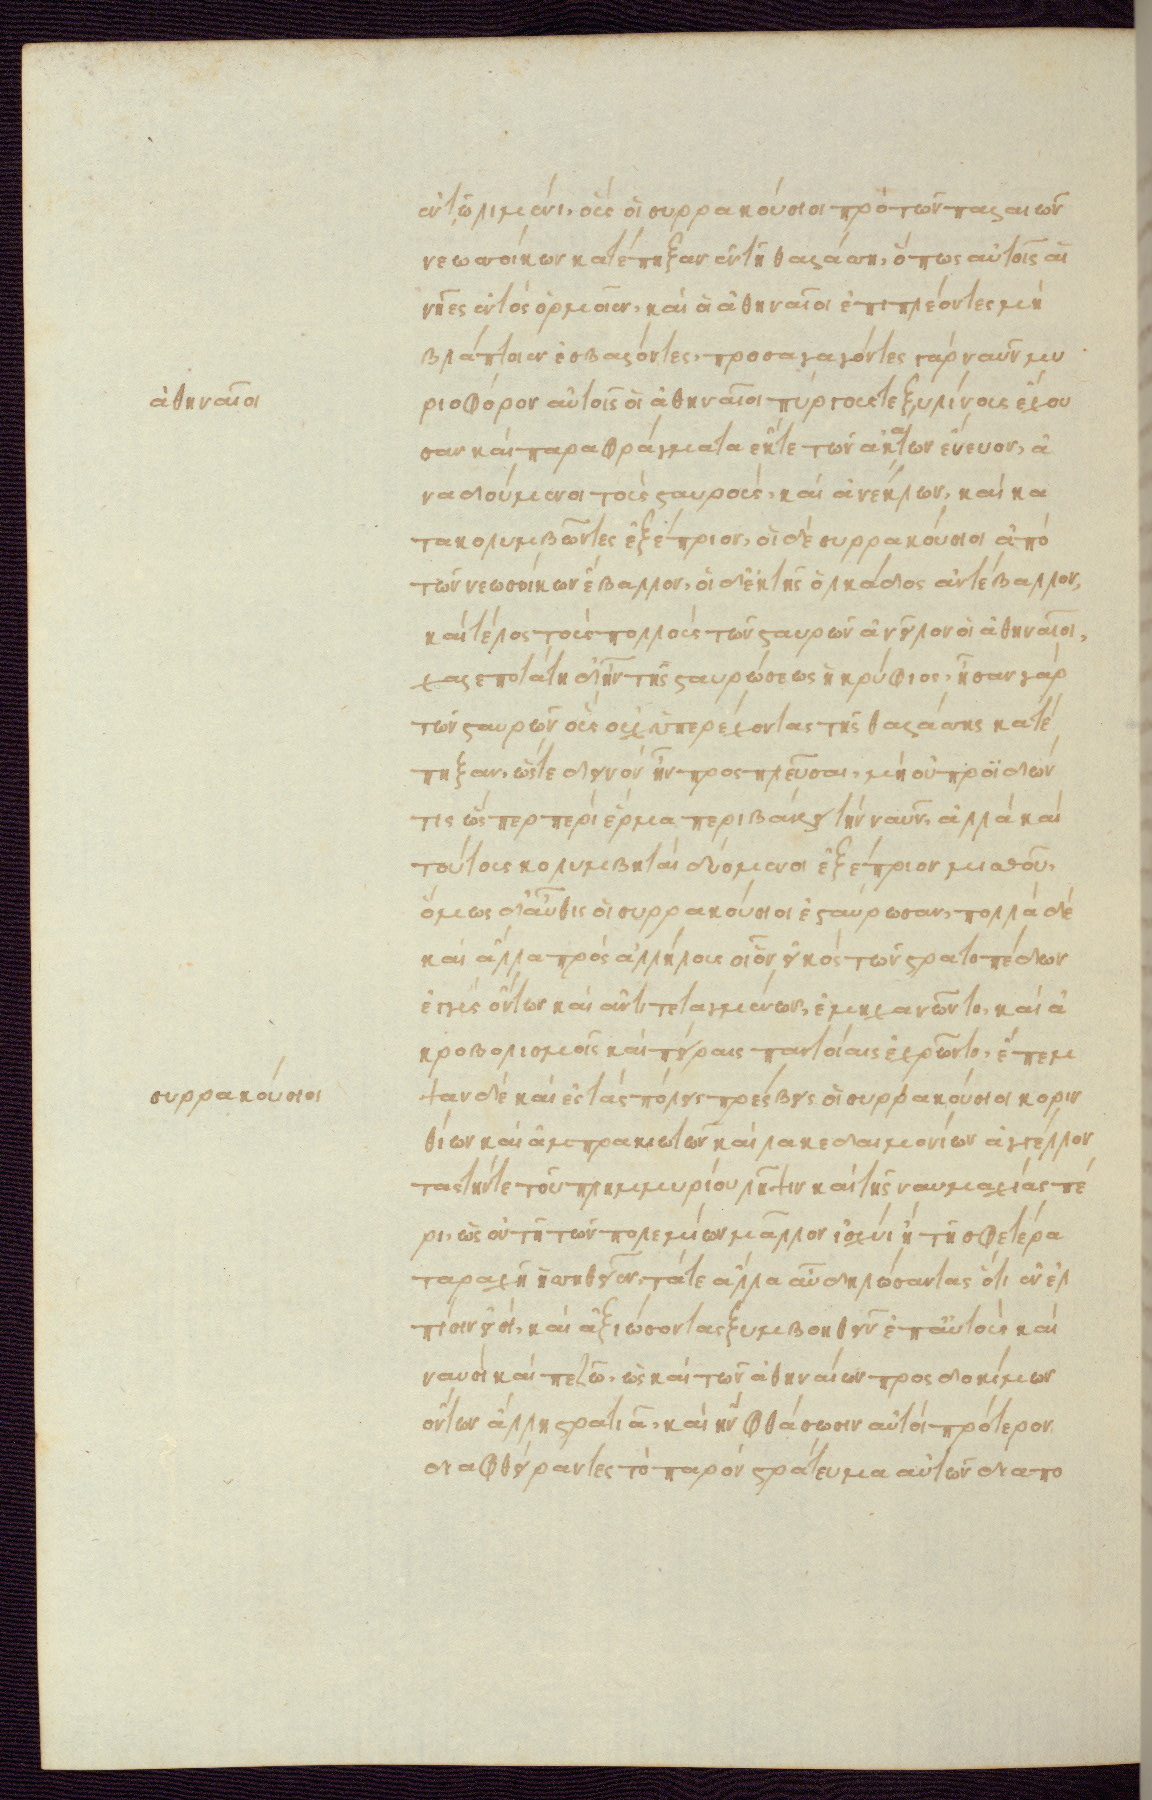 ἐν τῷ λιμένι, οὓς οἱ συρρακούσιοι πρὸ τῶν παλαιῶν
νεωσοίκων κατέπηξαν ἐν τῇ θαλάσσῃ, ὅπως αὐτοῖς αἱ
νῆες ἐντὸς ὁρμοῖεν, καὶ οἱ ἀθηναῖοι ἐπιπλέοντες μὴ
βλάπτοιεν ἐσβαλόντες, προσαγαγόντες γὰρ ναῦν μυ
ἀθηναῖοι
ριοφόρον αὐτοῖς οἱ ἀθηναῖοι πύργους τε ξυλίνους ἔχου
σαν καὶ παραφράγματα ἔκ τε τῶν ἀκάτων ὤνευον, ἀ
ναδούμενοι τοὺς σταυροὺς, καὶ ἀνέκλων, καὶ κα
τακολυμβῶντες ἐξέπριον, οἱ δὲ συρρακούσιοι ἀπὸ
τῶν νεωσοίκων ἔβαλλον, οἱ δ' ἐκ τῆς ὁλκάδος ἀντέβαλλον,
καὶ τέλος τοὺς πολλοὺς τῶν σταυρῶν ἀνεῖλον οἱ ἀθηναῖοι,
χαλεπωτάτη δ' ἦν τῆς σταυρώσεως ἡ κρύφιος, ἦσαν γὰρ
τῶν σταυρῶν οὓς οὐχ ὑπερέχοντας τῆς θαλάσσης κατέ
πηξαν, ὥστε δεινὸν ἦν προσπλεῦσαι, μὴ οὐ προϊδών
τις ὥσπερ περὶ ἕρμα περιβάλῃ τὴν ναῦν, ἀλλὰ καὶ
τούτους κολυμβηταὶ δυόμενοι ἐξέπριον μισθοῦ,
ὅμως δ' αὖθις οἱ συρρακούσιοι ἐσταύρωσαν, πολλὰ δὲ
καὶ ἄλλα πρὸς ἀλλήλους οἷον εἰκὸς τῶν στρατοπέδων
ἐγγὺς ὄντων καὶ ἀντιτεταγμένων, ἐμηχανῶντο, καὶ ἀ
κροβολισμοῖς καὶ πείραις παντοίαις ἐχρῶντο, ἔπεμ
συρρακούσιοι
ψαν δὲ καὶ ἐς τὰς πόλεις πρέσβεις οἱ συρρακούσιοι κοριν
θίων καὶ ἀμπρακιωτῶν καὶ λακεδαιμονίων ἀγγέλλον
τας τήν τε τοῦ πλημμυρίου λῆψιν καὶ τῆς ναυμαχίας πέ
ρι, ὡς οὐ τῇ τῶν πολεμίων μᾶλλον ἰσχύι ἢ τῇ σφετέρᾳ
ταραχῇ ἡσσηθεῖεν, τά τε ἄλλα αὖ δηλώσαντας ὅτι ἐν ἐλ
πίσιν εἰσὶ, καὶ ἀξιώσοντας ξυμβοηθεῖν ἐπ' αὐτοὺς καὶ
ναυσὶ καὶ πεζῷ, ὡς καὶ τῶν ἀθηναίων προσδοκίμων
ὄντων ἄλλῃ στρατιᾷ, καὶ ἢν φθάσωσιν αὐτοὶ πρότερον
διαφθείραντες τὸ παρὸν στράτευμα αὐτῶν διαπο